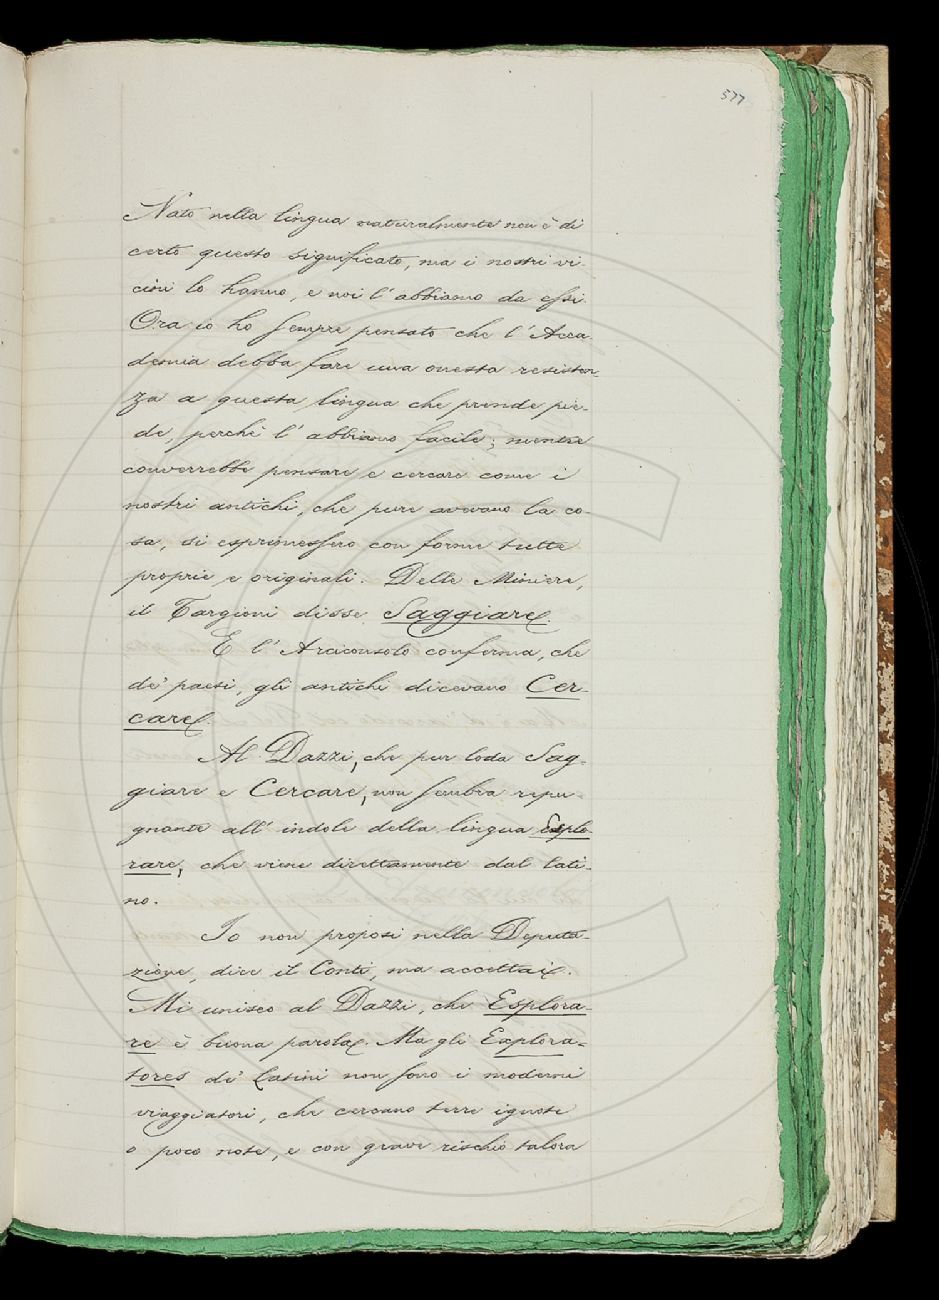 577
Nato nella lingua naturalmente non è di
certo questo significato, ma i nostri vi-
cini lo hanno, e noi l'abbiamo da essi.
Ora io ho sempre pensato che l'Acca
demia debba fare una onesta resisten-
za a questa lingua che prende pie-
de, perchè l'abbiamo facile; mentre
converrebbe pensare e cercare come i
nostri antichi, che pure avevano la co-
sa, si esprimessero con forme tutte
proprie e originali. Delle Miniere,
il Targioni disse Saggiare.
E l'Arciconsolo conferma, che
de' paesi, gli antichi dicevano Cer-
care.
Al Dazzi, che pur loda Sag-
giare e Cercare, non sembra repu-
gnante all'indole della lingua Esplo-
rare, che viene direttamente dal lati-
no.
Io non proposi nella Deputa-
zione, dice il Conti, ma accettai.
Mi unisco al Dazzi, che Esplora-
re è buona parola. Ma gli Explora-
tores de' Latini non sono i moderni
viaggiatori, che cercano terre ignote
o poco note, e con grave rischio talora